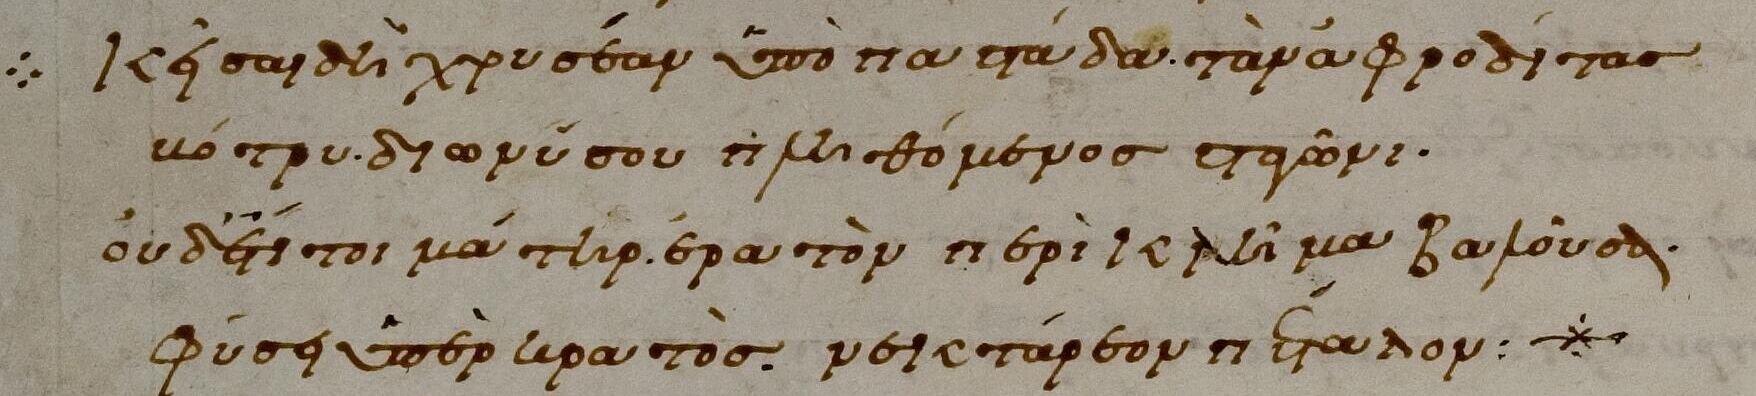 κεῖσαι δὴ χρυσέαν ὑπὸ παστάδα. τὰν ἀφροδίτας
βότρυ. διωνύσου πληθόμενος σταγῶνι.
οὐδ' ἔτι τοι μάτηρ. ἐρατὸν περὶ κλῆμα βαλοῦσα.
φύσει ὑπὲρ κρατὸς. νεκτάρεον πέταλον :